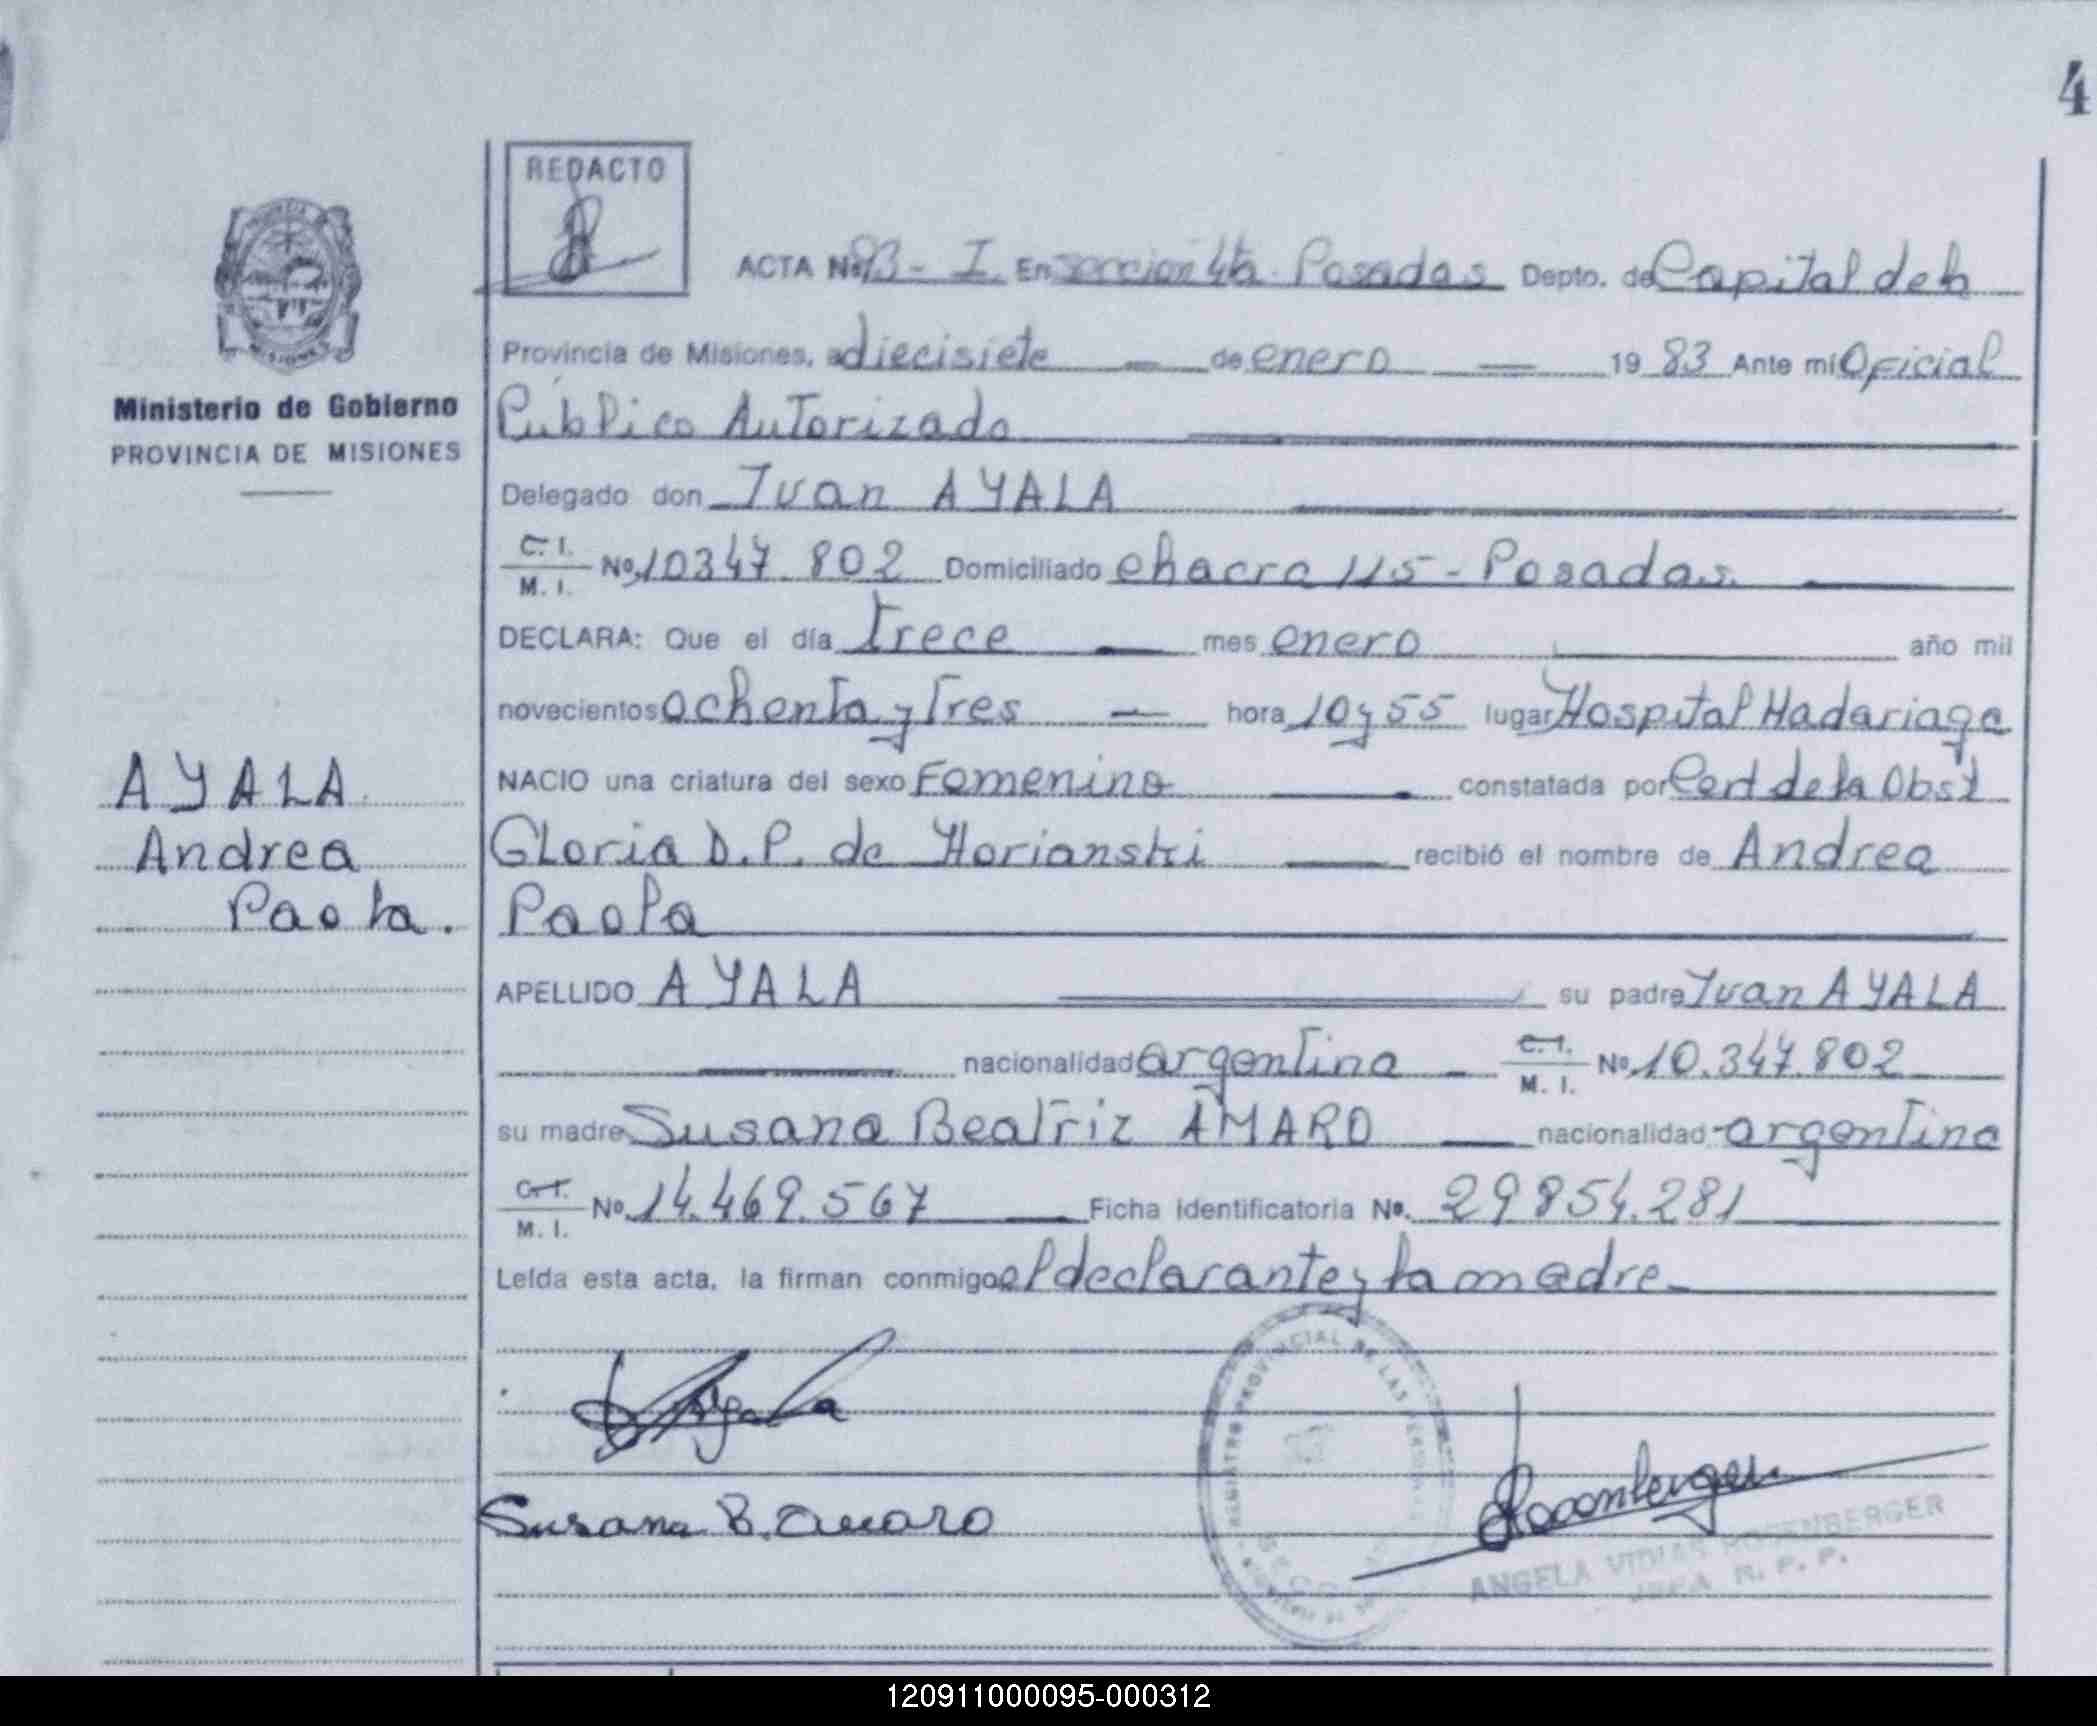 4
REDACTO
ACTA Nº 93 - I En sección 4ta. Posadas Depto. de Capital de la
Provincia de Misiones, a diecisiete de enero 1983 Ante mí Oficial
Público Autorizado
Ministerio de Gobierno
PROVINCIA DE MISIONES
Delegado don Ivan AYALA
C. I.
M. I. Nº 10347.802 Domiciliado chacra 115 - Posadas.
DECLARA: Que el día trece mes enero año mil
novecientos ochenta y tres hora 10 y 55 lugar Hospital Madariaga
NACIO una criatura del sexo Femenino constatada por Cert de la Obst
Gloria D. P. de Horianski recibió el nombre de Andrea
Paola
AYALA
Andrea
Paola.
APELLIDO AYALA su padre Ivan AYALA
nacionalidad argentina C. I. M. I. Nº 10.347.802
su madre Susana Beatriz AMARO nacionalidad argentina
C. I.
M. I. Nº 14.469.567 Ficha Identificatoria Nº. 29854.281
Leída esta acta, la firman conmigo el declarante y la madre
Ayala
Susana B. Amaro
REGISTRO PROVINCIAL DE LAS PERSONAS
ANGELA VIDIAS ROSENBERGER
JEFA R. P. P.
120911000095-000312